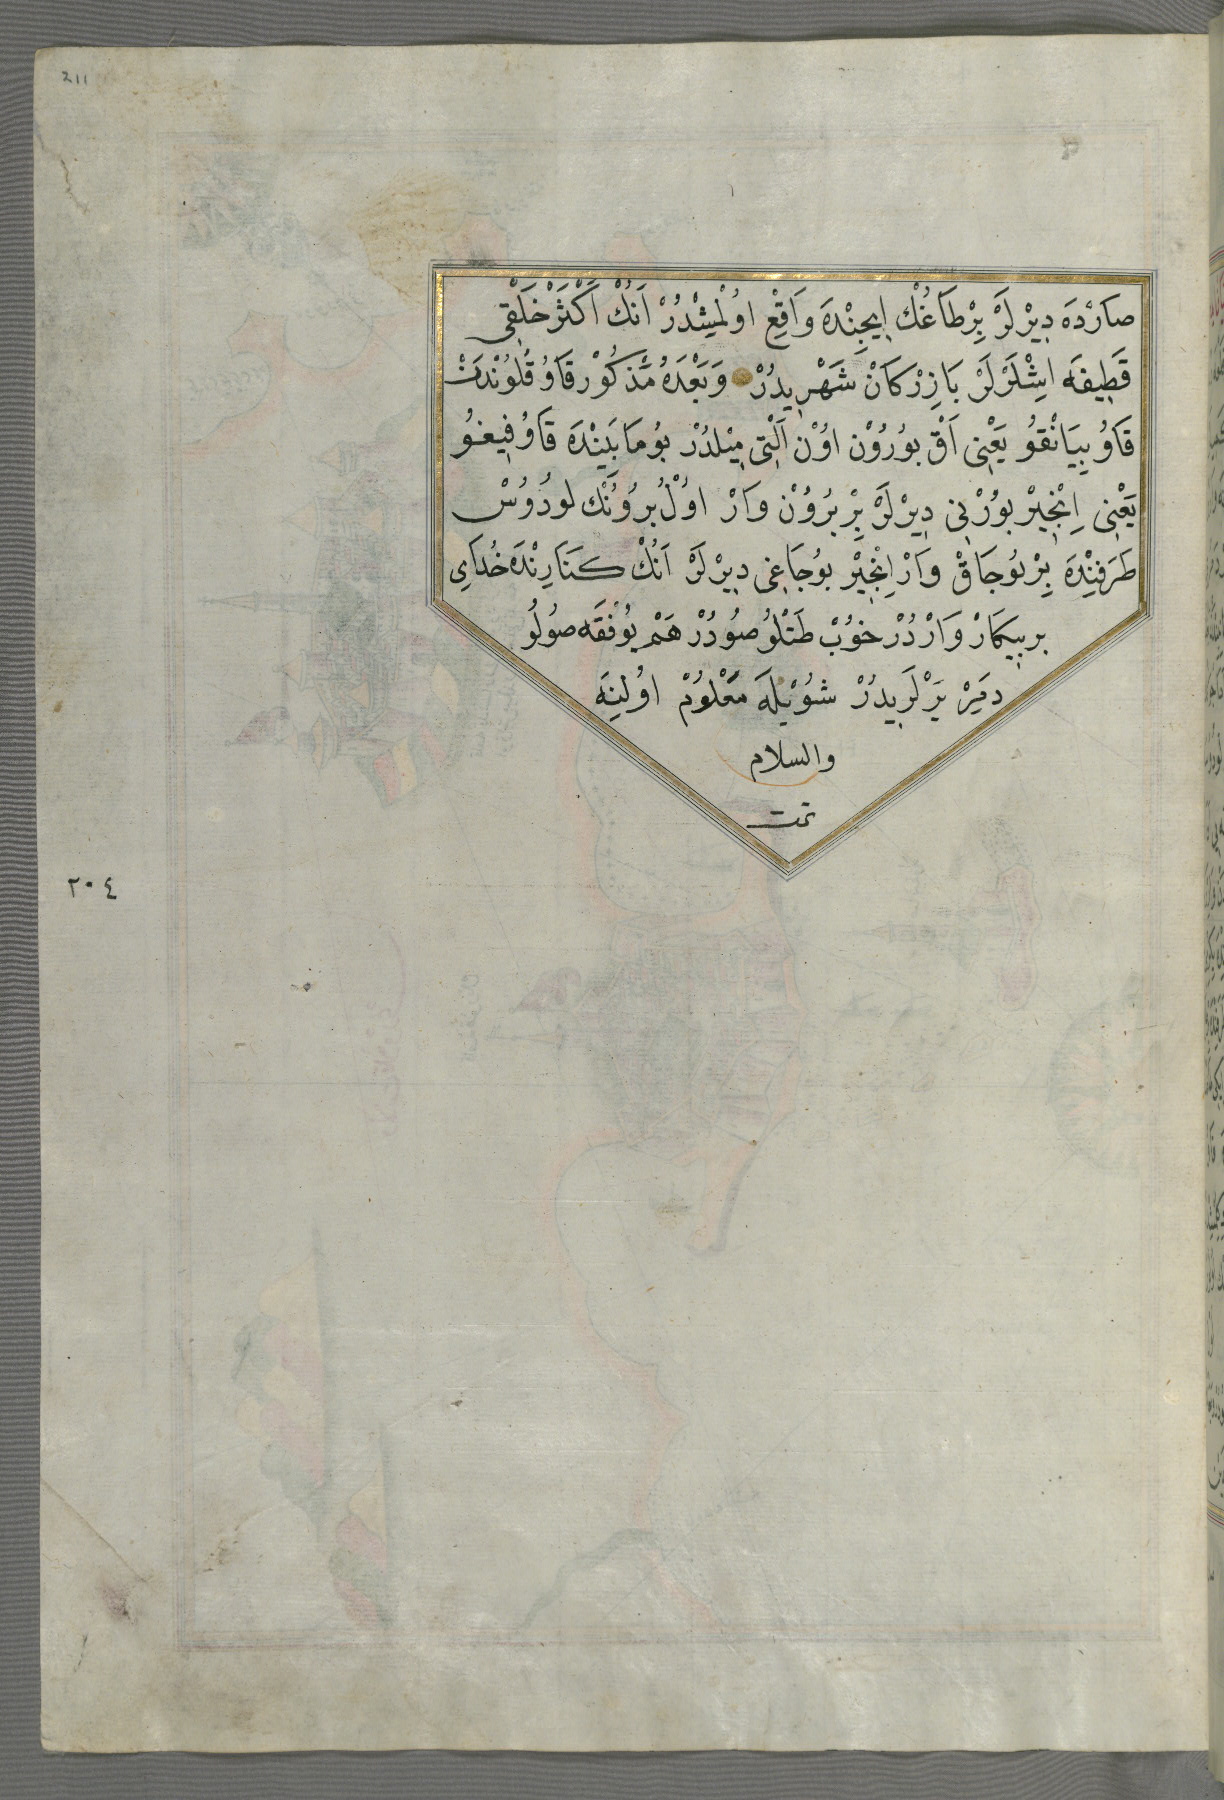 211
صَارْدَه دِيرْلَرْ بِرْ طَاغُڭْ اِيچِنْدَهَ وَاقِعْ اوُلْمِشْدُرْ اَنُڭْ اَكْثَرْ خَلْقِى
قَطِيفَه اِشْلَرْلَرْ بَازِرْكَانْ شَهْرِيدُرْ وَبَعْدَهُ مَذْكُورْ قَاوُ قُلُونْدَنْ
قَاوُ بِيَانْقوُ يَعْنِى آقْ بوُرُوُنْ اوُنْ اَلْتِى مِيْلدُرْ بوُ مَابَيْنْدَه قَاوُ فِيغوُ
يَعْنِى اِنْجِيرْ بوُرْنِى دِيرْلَرْ بِرْ بُرُوُنْ وَارْ اوُلْ بُروُنُڭْ لودُوُسْ
طَرَفِنْدَه بِرْ بوُجَاقْ وَارْ اِنْجِيرْ بوُجَاغِى دِيرْلَرْ اَنُڭْ كَنَارِنْدَه خُدَايِى
بر بِيڭَارْ وَارْدُرْ خوُبْ طَتْلوُ صوُدُرْ هَمْ يوُفْقَه صوُلُو
دَمِيرْ يَرْلَرِيدُرْ شوُيْلَه مَعْلوُمْ اوُلِنَه
والسلام
تمت
٢٠٤